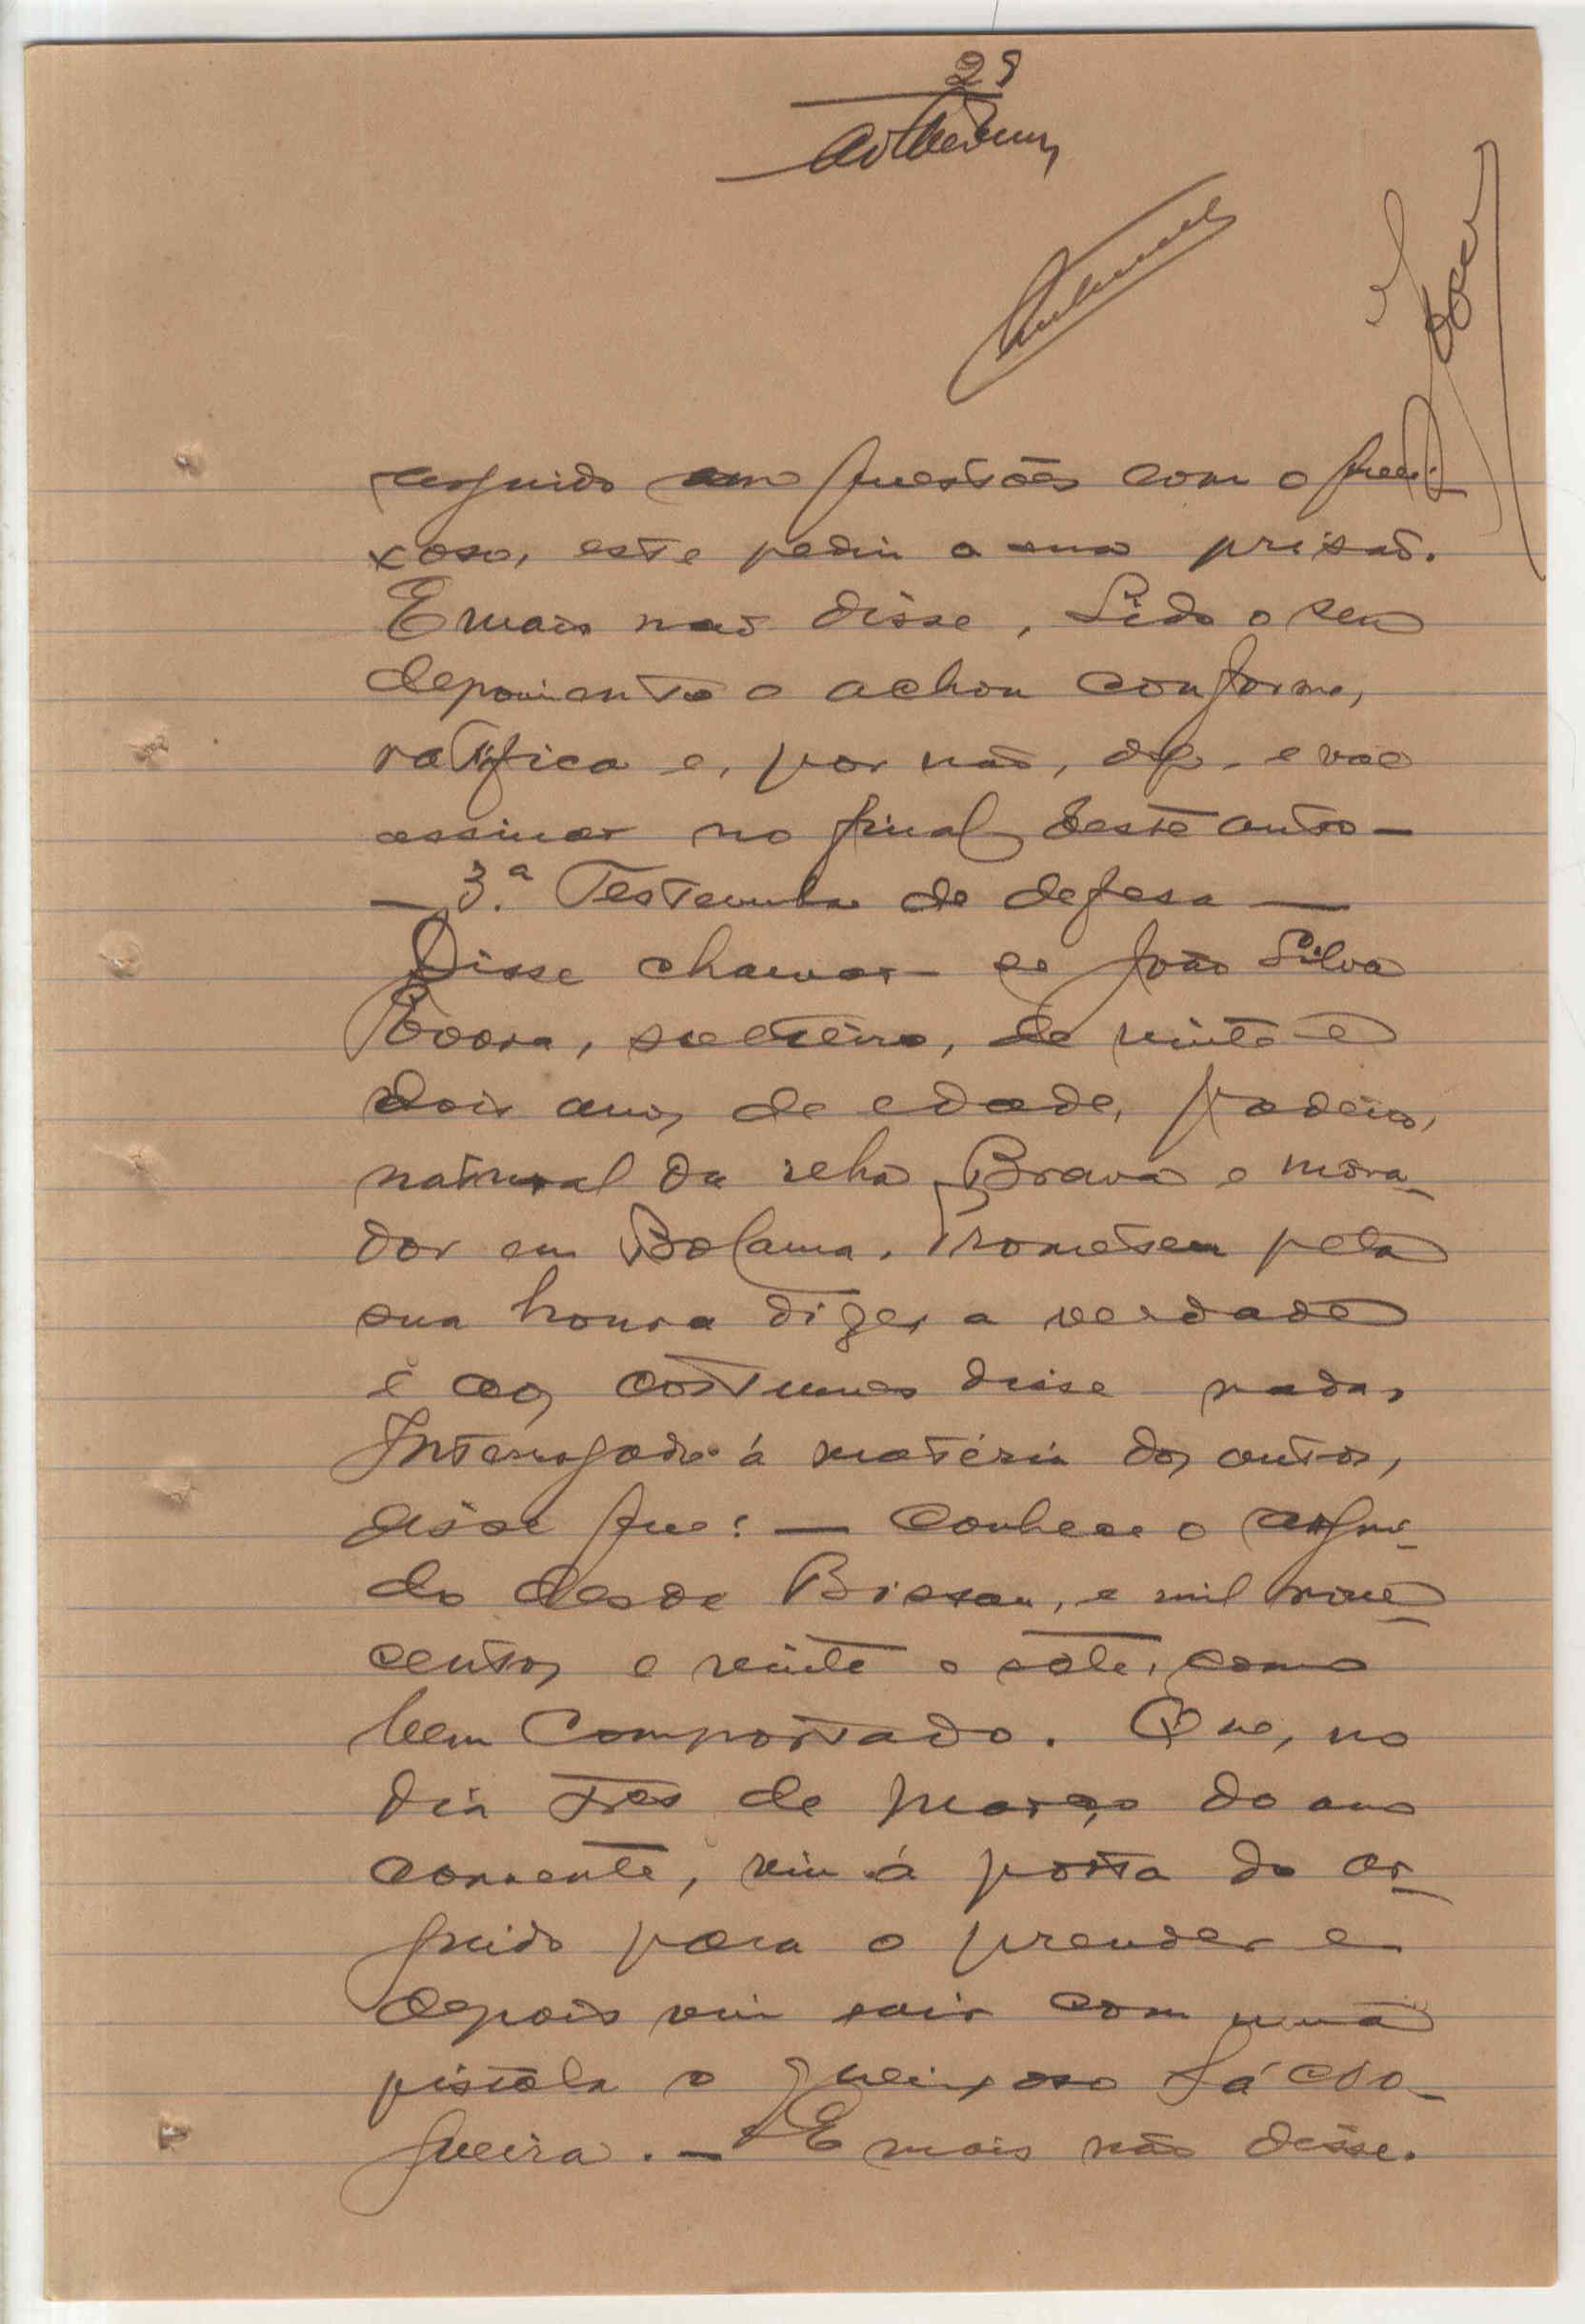 29
arguido em questões com o quei-
xoso, este pediu a sua prisão.
E mais não disse, Lido o seu
depoimento o achou conforme,
ratifica e, por não, dig. e vae
assinar no final deste auto —
— 3.ª Testemunha de defesa —
Disse chamar-se João Silva
Evora, solteiro, de vinte e
dois anos de edade, padeiro,
natural da ilha Brava e mora-
dor em Bolama. Prometeu pela
sua honra dizer a verdade
e aos costumes disse nada,
Interrogado á matéria dos autos,
disse que: — Conhece o argui-
do desde Bissau, e mil nove
centos e vinte e sete, como
bem comportado. Que, no
dia tres de março do ano
corrente, viu á porta do ar-
guido para o prender e
depois viu sair com uma
pistola o queixoso Sá
gueira. — E mais não disse.